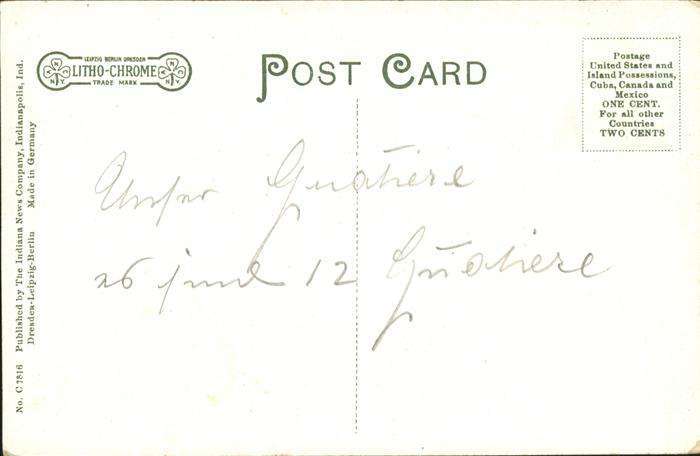 LEIPZIG BERLIN DRESDEN
LITHO-CHROME
TRADE MARK
POST CARD
Postage
United States and
Island Possessions,
Cuba, Canada and
Mexico
ONE CENT.
For all other
Countries
TWO CENTS
Unser Guatiere
26 june 12 Guatiere
No. C 7816 Published by The Indiana News Company, Indianapolis, Ind.
Dresden-Leipzig-Berlin Made in Germany